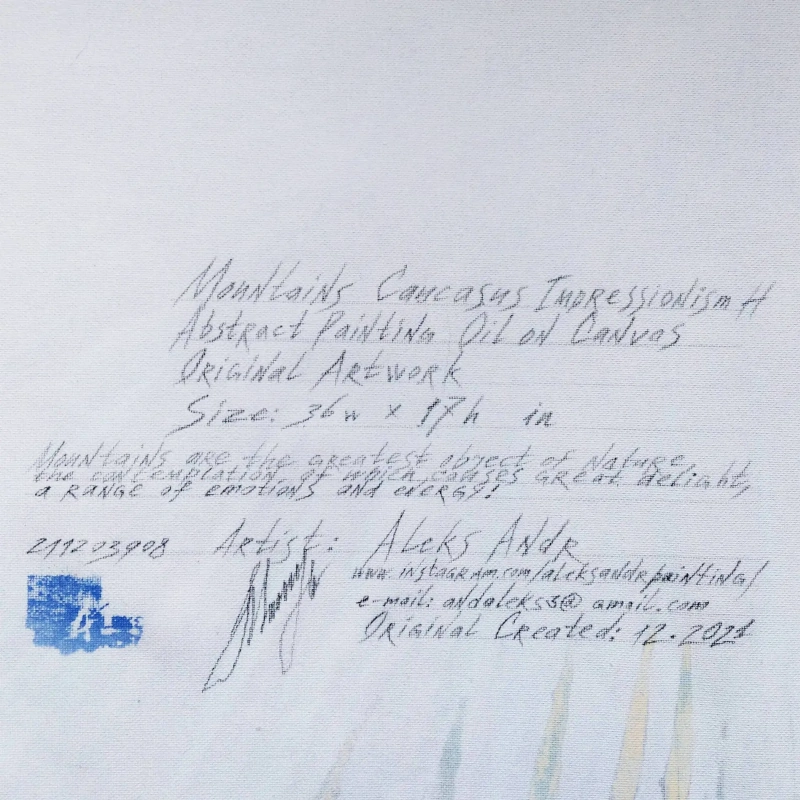 Mountains Caucasus Impressionism H
Abstract Painting Oil on Canvas
Original Artwork
Size: 36w x 17h in
Mountains are the greatest object of Nature,
the contemplation of which causes great delight,
a range of emotions and energy!
211203908 Artist: Aleks Andr
www.instagram.com/aleksandrpainting/
e-mail: andaleks3@gmail.com
Original Created: 12.2021